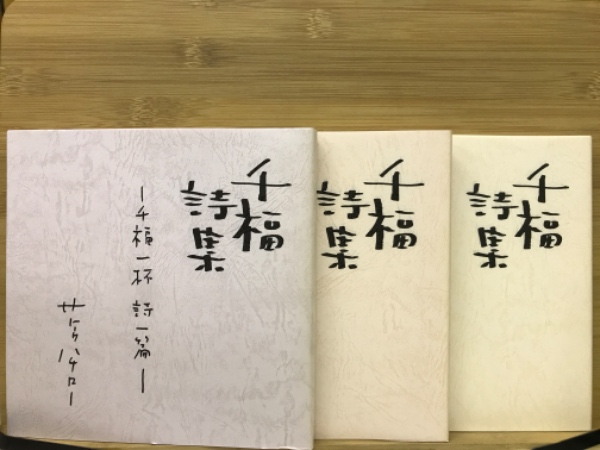 千福
詩集
ー千福一杯 詩一篇ー
サトウハチロー
千福
詩集
千福
詩集